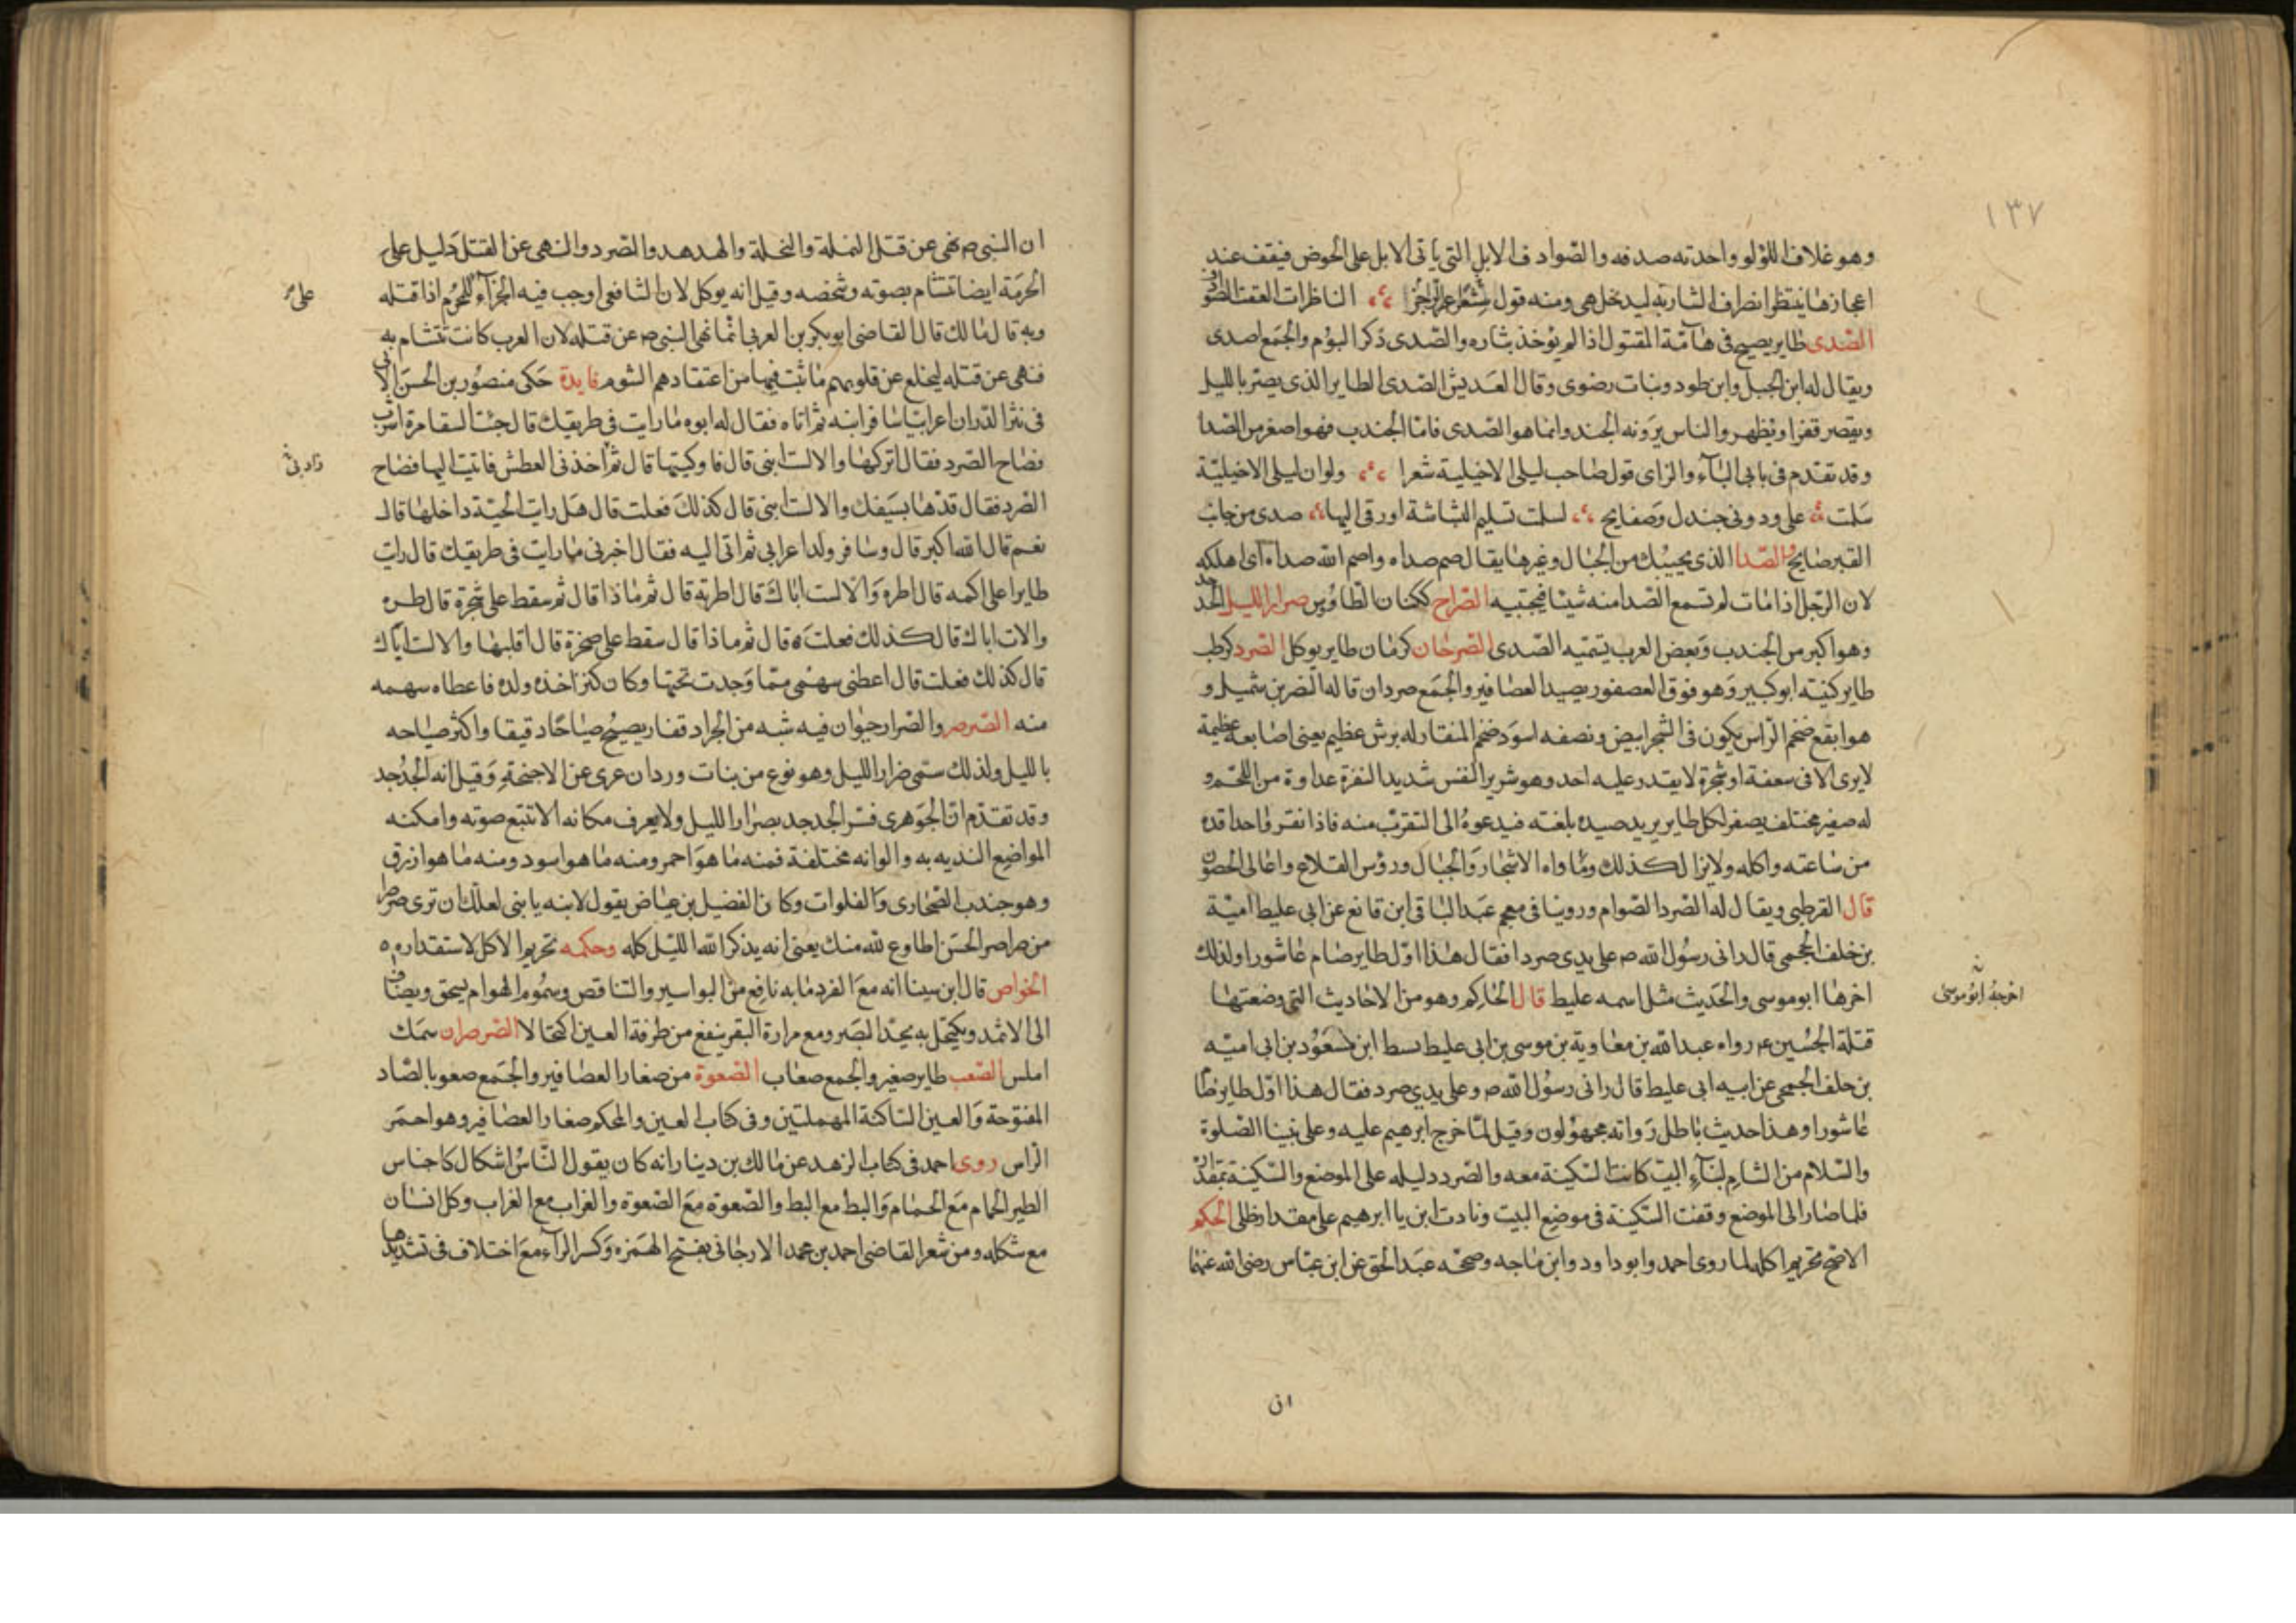 ١٣٧
وهو غلاف اللؤلؤ واحدته صدفه والصوادف الابل التي ياتى الابل على الحوض فيقف عند
اعجازها ينتظر انصراف الشاربه ليدخل هى ومنه قول الناظرات العقب الصوادف
الصّدى طاير يصيح فى هامّة المقتول اذا لم يؤخذ بثاره والصّدى ذكر البؤم والجمع اصدى
ويقال له ابن الجبل وابن طود وبنات رضوى وقال العدبس الصّدى الطاير الذى يصر بالليل
ويقصر قفزا ويظهر والناس يرونه الجند وانما هو الصّدى فامّا الجندب فهو اصغر من الصّدا
وقد تقدم فى بابى البآء والزاى قول صاحب ليلى الاخيلية شعرا ولو ان ليلى الاخيليّة
سلمت علىّ ودونى جندل وصفايح لسلمت تسليم البشاشة او رقى اليها صدى من جانب
القبر صايح والصّدا الذى يجيبك من الجبال وغيرها يقال صم صداه واصم الله صداه اى اهلكه
لان الرّجل اذا مات لم تسمع الصّدا منه شيئا فيجيبه الصّراخ ككتان الطّاوس صرار الليل الجدجد
وهو اكبر من الجندب وبعض العرب يسميه الصّدى الصرخان كرمان طاير يوكل الصرد كرطب
طاير كنيته ابو كبير وهو فوق العصفور يصيد العصافير والجمع صردان قاله النضر بن شميل و
هو ابقع ضخم الرّاس يكون فى الشجر ابيض ونصفه اسود ضخم المنقار له برش عظيم يعنى اصابعه عظيمة
لا يرى الا فى سعفة او شجرة لا يقدر عليه احد وهو شرير النفس شديد النفرة عداوة من اللحم و
له صفير مختلف يصفر لكل طاير يريد صيده بلغته فيدعوه الى التقرّب منه فاذا نقر واحدا قده
من ساعته واكله ولا يزال كذلك وماواه الاشجار والجبال ورؤس القلاع واعالى الحصون
قال القرطبى ويقال له الصّرد الصّوام وروينا فى معجم عبد الباقى ابن قانع عن ابى غليط اميّة
بن خلف الجمحى قال رانى رسول الله ص على يدى صردا فقال هذا اول طاير صام عاشورا ولذلك
اخرها ابو موسى والحديث مثل اسمه غليط قال الحاكم وهو من الاحاديث التى وضعتها
اخرجه ابو موسى
قتلة الحسين ع رواه عبد الله بن معاوية بن موسى بن ابى غليط نسط ابن مسعود بن ابى اميّه
بن خلف الجمحى عن ابيه ابى غليط قال رانى رسول الله ص وعلى يدى صرد فقال هذا اوّل طاير صام
عاشورا وهذا حديث باطل رواته مجهولون وقيل لمّا خرج ابرهيم عليه وعلى نبينا الصّلوة
والسّلام من الشام لبنآء البيت كانت السّكينة معه والصّرد دليله على الموضع والسّكينة بمقداره
فلما صار الى الموضع وقفت السّكينة فى موضع البيت ونادت ابن يا ابرهيم على مقدار ظلى الحكم
الاصّح تحريم اكله لما روى احمد وابو داود وابن ماجه وصحّحه عبد الحق عن ابن عبّاس رضى الله عنهما
ان
ان النبى ص نهى عن قتل النملة والنحلة والهدهد والصّرد والنهى عن القتل دليل على
الحرمة ايضا تتشأم بصوته وشخصه وقيل انه يوكل لان الشافعى اوجب فيه الجزآء على المحرم اذا قتله
على
وبه قال مالك قال القاضى ابو بكر بن العربى انّما نهى النبى ص عن قتله لان العرب كانت تتشام به
فنهى عن قتله ليخلع عن قلوبهم ما ثبت فيها من اعتقادهم الشوم فايدة حكى منصور بن الحسن الابى
فى نثر الدّر ان اعرابيّا سافر ابنه ثم اتاه فقال له ابوه ما رايت فى طريقك قال جئت السقا مرة اشرب
فصاح الصّرد فقال اتركها والا لست ابنى قال فاوكيتها قال ثم اخذنى العطش فاتيت اليها فصاح
الصّرد فقال قدها بسيفك والا لست ابنى قال كذلك فعلت قال هل رايت الحيّة داخلها قال
نعم قال الله اكبر قال وسافر ولد اعرابى ثم اتى اليه فقال اخبرنى ما رايت فى طريقك قال رايت
طايرا على اكمه قال اطره والا لست اباك قال اطرته قال ثم ماذا قال ثم سقط على شجرة قال طره
والا لست اباك قال كذلك فعلت قال ثم ماذا قال سقط على صخرة قال اقلبها والا لست اباك
قال كذلك فعلت قال اعطنى سهمى ممّا وجدت تحتها وكان كنز اخذه ولده فاعطاه سهمه
منه الصّرصر والصّرار حيوان فيه شبه من الجراد قفار يصيح صياحًا دقيقا واكثر صياحه
بالليل ولذلك سمّى صرار الليل وهو نوع من بنات وردان عرى عن الاجنحة وقيل انه الجدجد
وقد تقدّم انّ الجوهرى فسر الجدجد بصرّار الليل ولا يعرف مكانه الا تتبع صوته وامكنه
المواضع النديه به والوانه مختلفة فمنه ما هو احمر ومنه ما هو اسود ومنه ما هو ازرق
وهو جندب الصّحارى والفلوات وكان الفضيل بن عياض يقول لابنه يا بنى لعلك ان ترى صرصرا
من صراصر الحسن اطاوع لله منك يعنى انه يذكر الله الليل كله وحكمه تحريم الاكل لاستقداره
الخواص قال ابن سينا انه مع القرد مابه نافع من البواسير والتناقص وسموم الهوام يسحق ويضاف
الى الاثمد ويكتحل به يحدّ البصر ومع مرارة البقر ينفع من طرفة العين اكتحالا الصّرصران سمك
املس الصّعب طاير صغير والجمع صعاب الصّعوة من صغار العصافير والجمع صعو بالصّاد
المفتوحة والعين السّاكنة المهملتين وفى كتاب العين والمحكم صغار العصافير وهو احمر
الراس روى احمد فى كتاب الزهد عن مالك بن دينار انه كان يقول النّاس اشكال كاجناس
الطير الحمام مع الحمام والبط مع البط والصّعوة مع الصّعوة والغراب مع الغراب وكل انسان
مع شكله ومن شعر القاضى احمد بن محمد الارجانى بفتح الهمزه وكسر الرآء مع اختلاف فى تشديدها